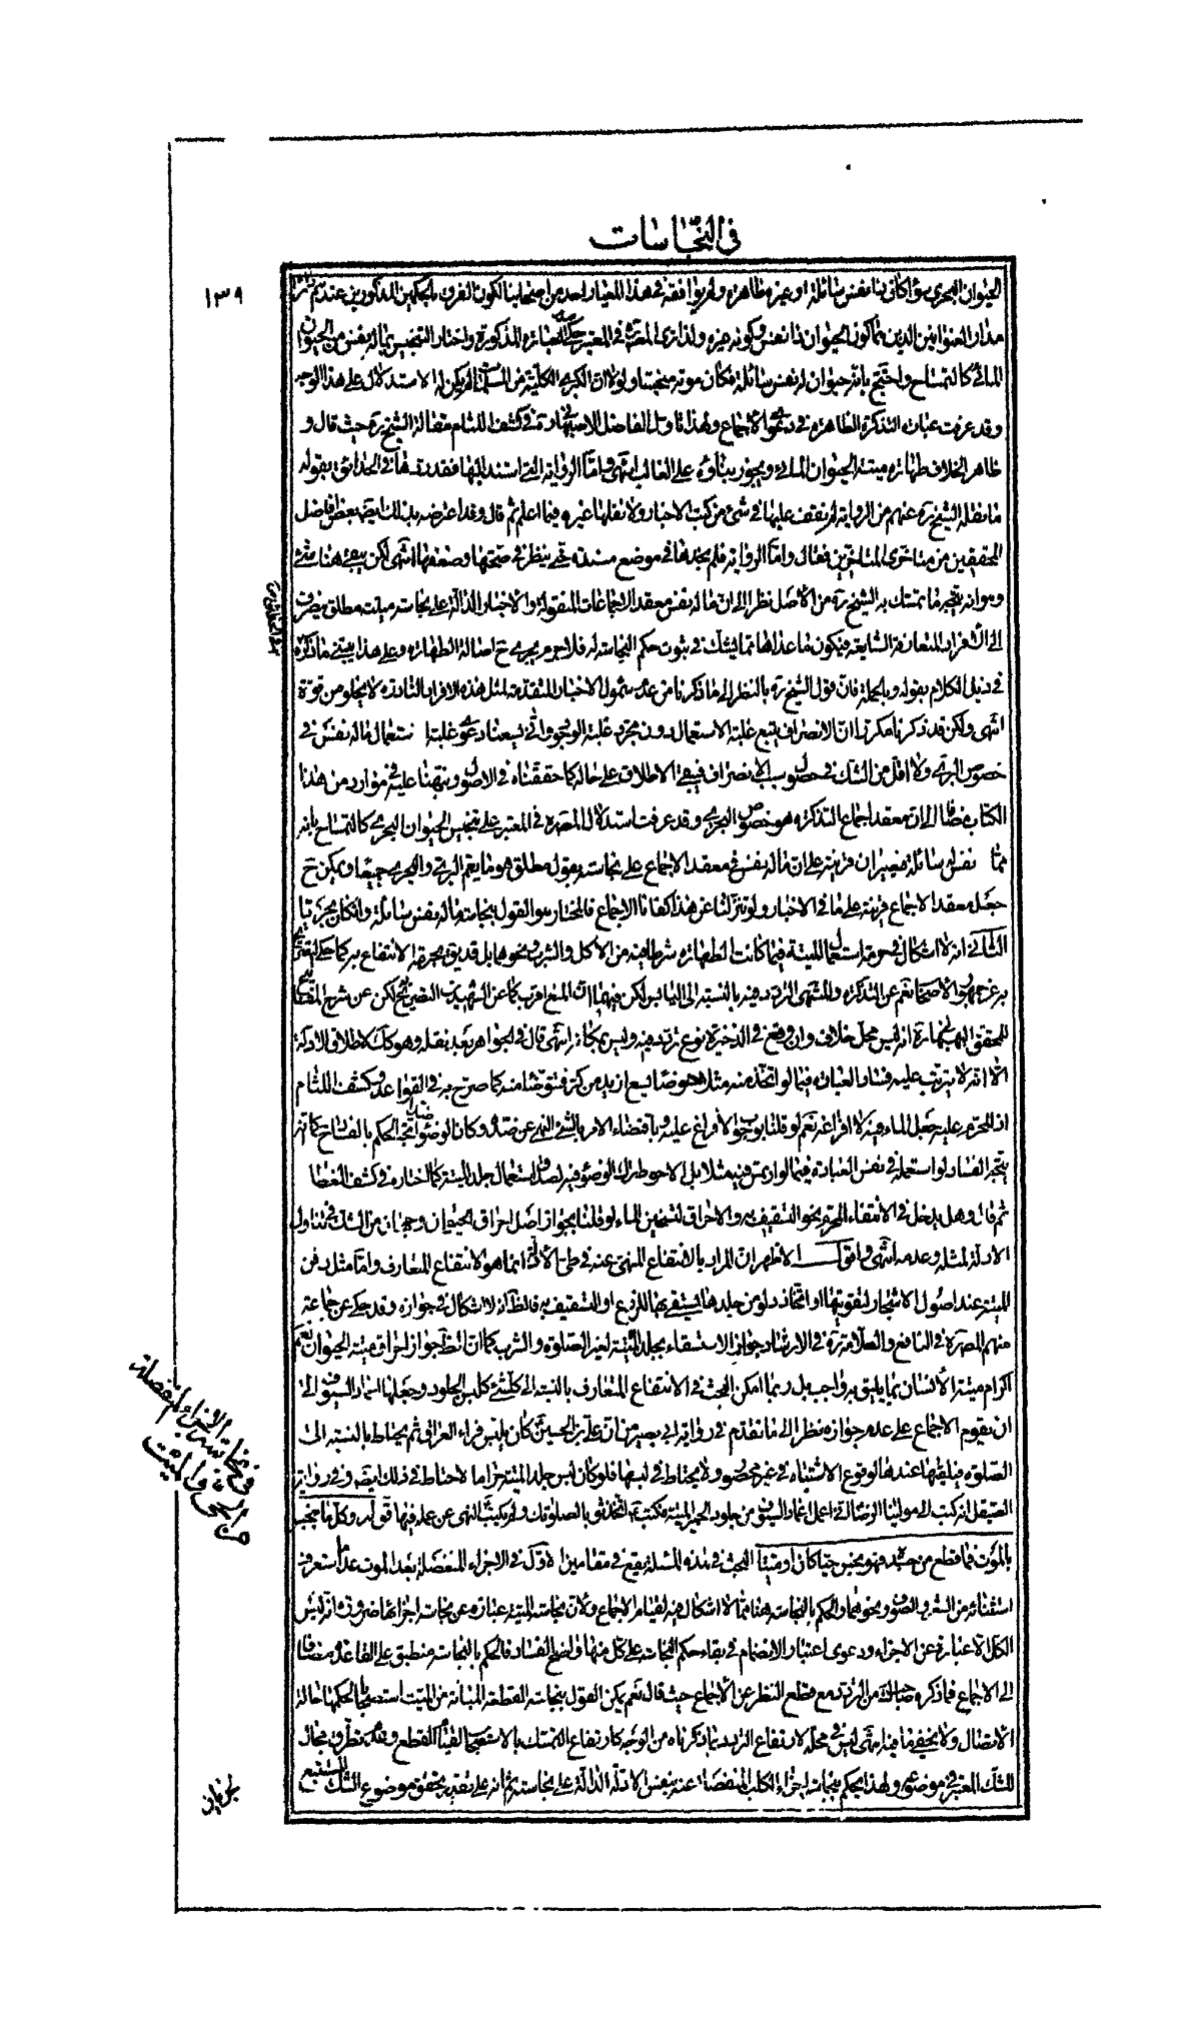 في النجاسات
١٣٩
الحيوان البحري سواء كان ذا نفس سائلة او غيره طاهرة ولم يوافقه في هذا المعيار احد من اصحابنا لكون الفرق بالحكمين المذكورين عندهم
مدار العنوانين الذين هما كون الحيوان ذا نفس وكونه غيره ولذا ترى المحقق في المعتبر حكى العبارة المذكورة واختار التنجيس بماله نفس من الحيوان
المائي كالتمساح واحتج بانه حيوان له نفس سائلة فكان موته منجسا ولولا ان الكبرى الكلية من المسلمات لم يكن له الاستدلال على هذا الوجه
وقد عرفت عبارة التذكرة الظاهرة في دعوى الاجماع ولهذا تاول الفاضل الاصبهاني ره في كشف اللثام مقالة الشيخ ره حيث قال و
ظاهر الخلاف طهارة ميتة الحيوان المائي ويجوز بناؤه على الغالب انتهى واما الرواية التي استند اليها فقد ردها في الحدائق بقوله
ما نقله الشيخ ره عنهم من الرواية لم نقف عليها في شيء من كتب الاخبار ولا نقلها غيره فيما اعلم ثم قال وقد اعترضه بذلك ايضا بعض افاضل
المحققين من متاخري المتاخرين فقال واما الرواية فلم نجدها في موضع مسندة حتى ننظر في صحتها وضعفها انتهى لكن يبقى هنا شيء
وهو انه يتجه ما تمسك به الشيخ ره من الاصل نظرا الى ان ماله نفس معقد الاجماعات المنقولة والاخبار الدالة على نجاسة ميتة مطلق ينصرف
الى الافراد المتعارفة الشايعة فيكون ما عداها مما يشك في ثبوت حكم النجاسة له فلا جرم يجري ح اصالة الطهارة وعلى هذا يبتني ما ذكره
في ذيل الكلام بقوله وبالجملة فان قول الشيخ ره بالنظر الى ما ذكرنا من عدم شمول الاخبار المتقدمة لمثل هذه الافراد النادرة لا يخلو من قوة
انتهى ولكن قد ذكرنا مكررا ان الانصراف يتبع غلبة الاستعمال دون مجرد غلبة الوجود واني يسعنا دعوى غلبة استعمال ماله نفس في
خصوص البري ولا اقل من الشك في حصول سبب الانصراف فيبقى الاطلاق على حاله كما حققناه في الاصول ونبهنا عليه في موارد من هذا
الكتاب مضافا الى ان معقد اجماع التذكرة هو خصوص البحري وقد عرفت استدلال المصره في المعتبر على تنجيس الحيوان البحري كالتمساح بانه
مما نفس له سائلة فيصيران قرينة على ان ماله نفس في معقد الاجماع على نجاسته بقول مطلق هو ما يعم البري والبحري جميعا ويمكن ح
جعل معقد الاجماع قرينة على ما في الاخبار ولو تنزلنا عن هذا كفانا الاجماع فالمختار هو القول بنجاسة ماله نفس سائلة وان كان بحريا
الثاني انه لا اشكال في حرمة استعمال الميتة فيما كانت الطهارة شرطا فيه من الاكل والشرب ونحوهما بل قد يق بحرمة الانتفاع به كما حكى التصريح
به عن جمهور الاصحاب نعم عن التذكرة والمنتهى التردد فيه بالنسبة الى اليابس لكن فيهما ان المنع اقرب كما عن الشهيد ره التصريح لكن عن شرح المفاتيح
للمحقق البهبهاني ره انه ليس محل خلاف وان وقع في الذخيرة نوع تردد فيه وليس بمكانه انتهى قال في الجواهر بعد نقله وهو كك لاطلاق الادلة
الا انه لا يترتب عليه فساد العبادة فيما لو اتخذ منه مثلا حوضا يسع ازيد من كر فتوضا منه كما صرح به في القواعد وكشف اللثام
اذ المحرم عليه جعل الماء فيه لا افراغه نعم لو قلنا بوجوب الافراغ عليه وباقتضاء الامر بالشيء النهي عن ضده وكان الوضوء ضده اتجه الحكم بالفساد ح كما انه
يتجه الفساد لو استعمله في نفس العبادة فيما لو ارتمس فيه مثلا بل الاحوط ترك الوضوء فيه لصدق استعمال جلد الميتة كما اختاره في كشف الغطاء
ثم قال وهل يدخل في الانتفاع المحرم نحو التسقيف به والاحراق لتسخين الماء لو قلنا بجواز اصل احراق الحيوان وجهان من الشك في تناول
الادلة لمثله وعدمه انتهى واقول الاظهر ان المراد بالانتفاع المنهي عنه في طي الادلة انما هو الانتفاع المتعارف واما مثل دفن
الميتة عند اصول الاشجار لتقويتها او اتخاذ دلو من جلدها ليستقى بها للزرع او التسقيف به فالظ انه لا اشكال في جوازه وقد حكى عن جماعة
منهم المصره في النافع والعلامة ره في الارشاد جواز الاستسقاء بجلد الميتة لغير الصلوة والشرب كما ان الظ جواز احراق ميتة الحيوان نعم
اكرام ميتة الانسان بما يليق به واجب بل ربما امكن البحث في الانتفاع المتعارف بالنسبة الى كل شيء كلبس الجلود وجعلها اغماد السيوف الى
ان يقوم الاجماع على عدم جوازه نظرا الى ما تقدم في رواية ابي بصير من ان علي بن الحسين كان يلبس فراء العراق ثم يحتاط بالنسبة الى
الصلوة فيلقيها عندها لوقوع الاشتباه في غير محصور ولا يحتاط في لبسها فلو كان لبس جلد الميتة حراما لاحتاط في ذلك ايضا وفي رواية
الصيقل انه كتب الى مولينا الرضا اني اعمل اغماد السيوف من جلود الحمر الميتة فكتب اتخذ ثوبا لصلوتك ولم يكتب النهي عن عمله فيها قوله وكل ما ينجس
بالموت فما قطع من جسده فهو نجس حيا كان او ميتا البحث في هذه المسئلة يقع في مقامين الاول في الاجزاء المنفصلة بعد الموت عدا ما ستعرف
استثنائه من الشعر والصوف ونحوهما والحكم بالنجاسة هنا مما لا اشكال فيه لقيام الاجماع ولان نجاسة الميتة عبارة عن نجاسة اجزائها ضرورة انه ليس
الكل الا عبارة عن الاجزاء ودعوى اعتبار الانضمام في بقاء حكم النجاسة على كل منها واضح الفساد فالحكم بالنجاسة منطبق على القاعدة مضافا
الى الاجماع فما ذكره صاحب ك من التردد مع قطع النظر عن الاجماع حيث قال نعم يمكن القول بنجاسة القطعة المبانة من الميت استصحابا لحكمها حالة
الاتصال ولا يخفى ما فيه انتهى ليس في محله لارتفاع التردد بما ذكرناه من الوجه كارتفاع التمسك بالاستصحاب لقيام القطع وعدم تطرق مجال
للشك المعتبر في موضوعه ولهذا يحكم بنجاسة اجزاء الكلب المنفصلة عنه بنفس الادلة الدالة على نجاسته ثم انه على تقدير تحقق موضوع الشك المستتبع
في نجاسة الاجزاء المنفصلة
من الحي والميت
لجريان